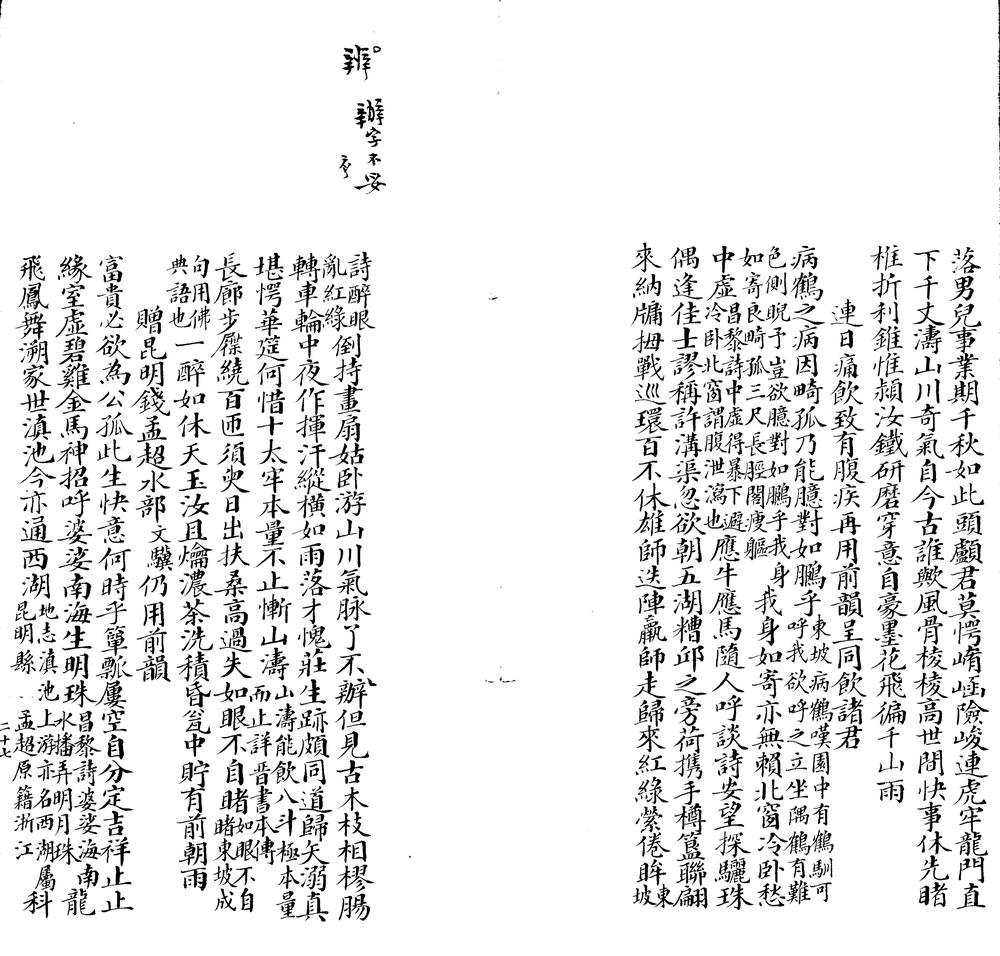 落男兒事業期千秋如此頭顱君莫愕崤崡險峻連虎牢龍門直
下千丈濤山川奇氣自今古誰歟風骨棱棱高世間快事休先睹
椎折利錐惟熲汝鐵研磨穿意自豪墨花飛徧千山雨
連日痛飲致有腹疾再用前韻呈同飲諸君
病鶴之病因畸孤乃能臆對如鵬乎東坡病鶴嘆園中有鶴馴可呼我欲呼之立坐隅鶴有難
色側睨予豈欲臆對如鵬乎我身如寄良畸孤三尺長脛閣瘦軀我身如寄亦無賴北窗冷卧愁
中虛昌黎詩中虛得暴下避冷卧北窗謂腹泄瀉也應牛應馬隨人呼談詩安望探驪珠
偶逢佳士謬稱許溝渠忽欲朝五湖糟邱之旁荷攜手樽簋聯翩
來納牖拇戰巡環百不休雄師迭陣羸師走歸來紅綠縈倦眸東坡
詩醉眼亂紅綠倒持畫扇姑卧游山川氣脉了不辦但見古木枝相樛腸
轉車輪中夜作揮汗縱橫如雨落才愧莊生跡頗同道歸矢溺真
堪愕華筵何惜十太牢本量不止慚山濤山濤能飲八斗極本量而止詳晉書本傳
長廊步屧繞百匝須臾日出扶桑高過失如眼不自睹如眼不自睹東坡成
句用佛典語也一醉如休天玉汝且爚濃茶洗積昏瓮中貯有前朝雨
贈昆明錢孟超水部文驥仍用前韻
富貴必欲為公孤此生快意何時乎簞瓢屢空自分定吉祥止止
緣室虛碧雞金馬神招呼婆娑南海生明珠昌黎詩婆娑海水播弄明月珠南龍
飛鳳舞溯家世滇池今亦通西湖地志滇池上游亦名西湖屬昆明縣孟超原籍浙江科
二十七
辦
辦字不妥